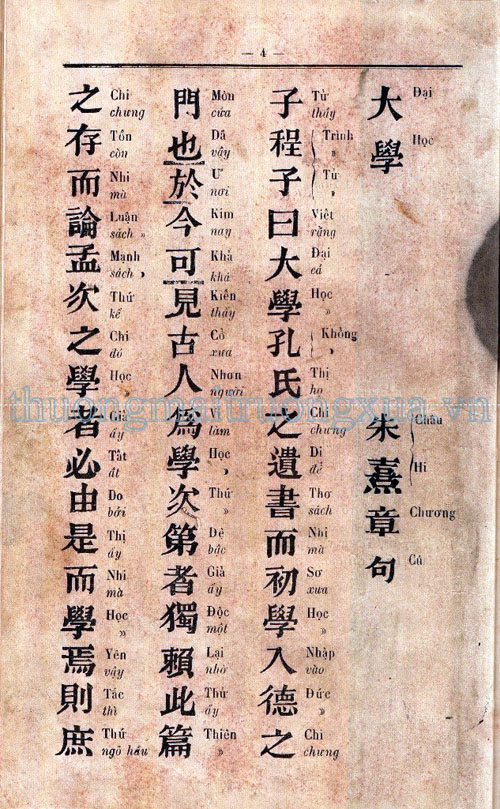 — 4 —
大學 朱熹章句
Đại
Học
Châu
Hi
Chương
Cú
子程子曰大學孔氏之遺書而初學入德之
Tử thầy
Trình »
Tử »
Việt rằng
Đại cả
Học »
Khổng »
Thị họ
Chi chưng
Di để
Thơ sách
Nhi mà
Sơ xưa
Học »
Nhập vào
Đức »
Chi chưng
門也於今可見古人為學次第者獨賴此篇
Môn cửa
Dã vậy
Ư nơi
Kim nay
Khả khá
Kiến thấy
Cổ xưa
Nhơn người
Vi làm
Học »
Thứ »
Đệ bậc
Giả ấy
Độc một
Lại nhờ
Thử ấy
Thiên »
之存而論孟次之學者必由是而學焉則庶
Chi chưng
Tồn còn
Nhi mà
Luận sách »
Mạnh sách »
Thứ kế
Chi đó
Học
Giả ấy
Tất ắt
Do bởi
Thị ấy
Nhi mà
Học »
Yên vậy
Tắc thì
Thứ ngõ hầu
thuongmaitruongxua.vn